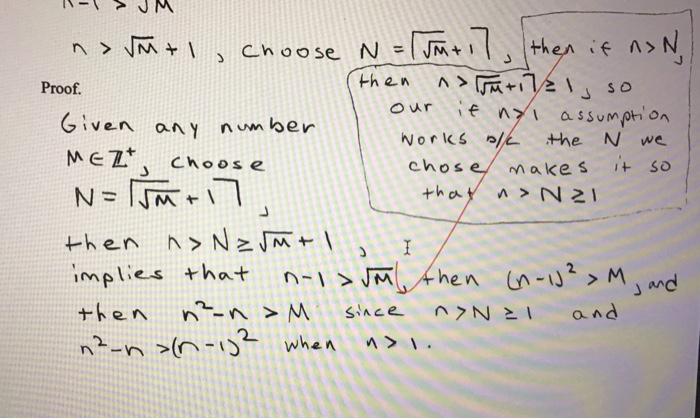 n-1 > √M
n > √M + 1, choose N = ⌈√M+1⌉, then if n>N,
then n > ⌈√M+1⌉ ≥ 1, so
our if n>1 assumption
works b/c the N we
chose makes it so
that n > N ≥ 1
Proof.
Given any number
M∈Z⁺, choose
N = ⌈√M + 1⌉,
then n > N ≥ √M + 1,
implies that n-1 > √M, then (n-1)² > M, and
then n²-n > M since n>N ≥ 1 and
n²-n >(n-1)² when n > 1.